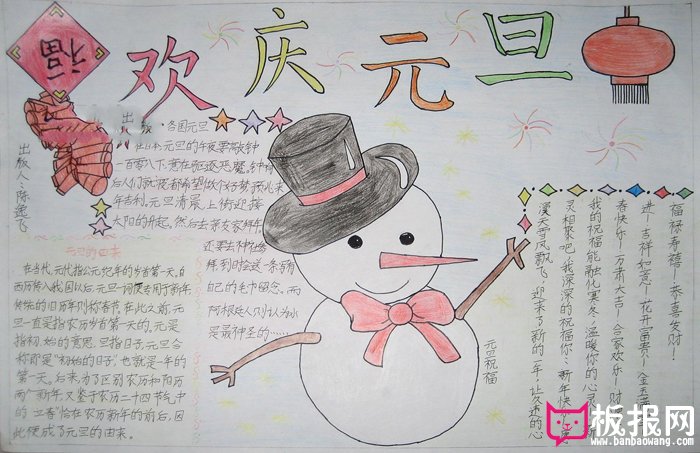 福
欢庆元旦
出版人:陈逸飞
各国元旦
日本元旦的午夜要敲钟
一百零八下,意在驱逐恶魔。钟声
后人们就寝都希望做个好梦预兆来
年吉利。元旦清晨,上街迎接
太阳的升起,然后去亲友家拜年
还要去神社
自己的走巾留念。而
阿根廷人则认为水
是最神圣的……
元旦的由来
在当代,元代指公元纪年的岁首第一天。自
西历传入我国以后,元旦一词便专用于新年
传统的旧历年则称春节。在此之前,元
旦一直是指农历岁首第一天的。元是
指初、始的意思,旦指日子,元旦合
称即是“初始的日子”,也就是一年的
第一天。后来,为了区别农历和阳历
两个新年,又鉴于农历二十四节气中
的“立春”恰在农历新年的前后,因
此便成了元旦的由来。
福禄寿禧!恭喜发财!
进!吉祥如意!花开富贵!金玉满
春快乐!万事大吉!合家欢乐!财
我的祝福能融化寒冬,温暖你的心灵
灵相聚吧!我深深的祝福你:新年快
漫天雪风飘飞,迎来了新的一年,让久违的心
元旦祝福
板报网
www.banbaowang.com